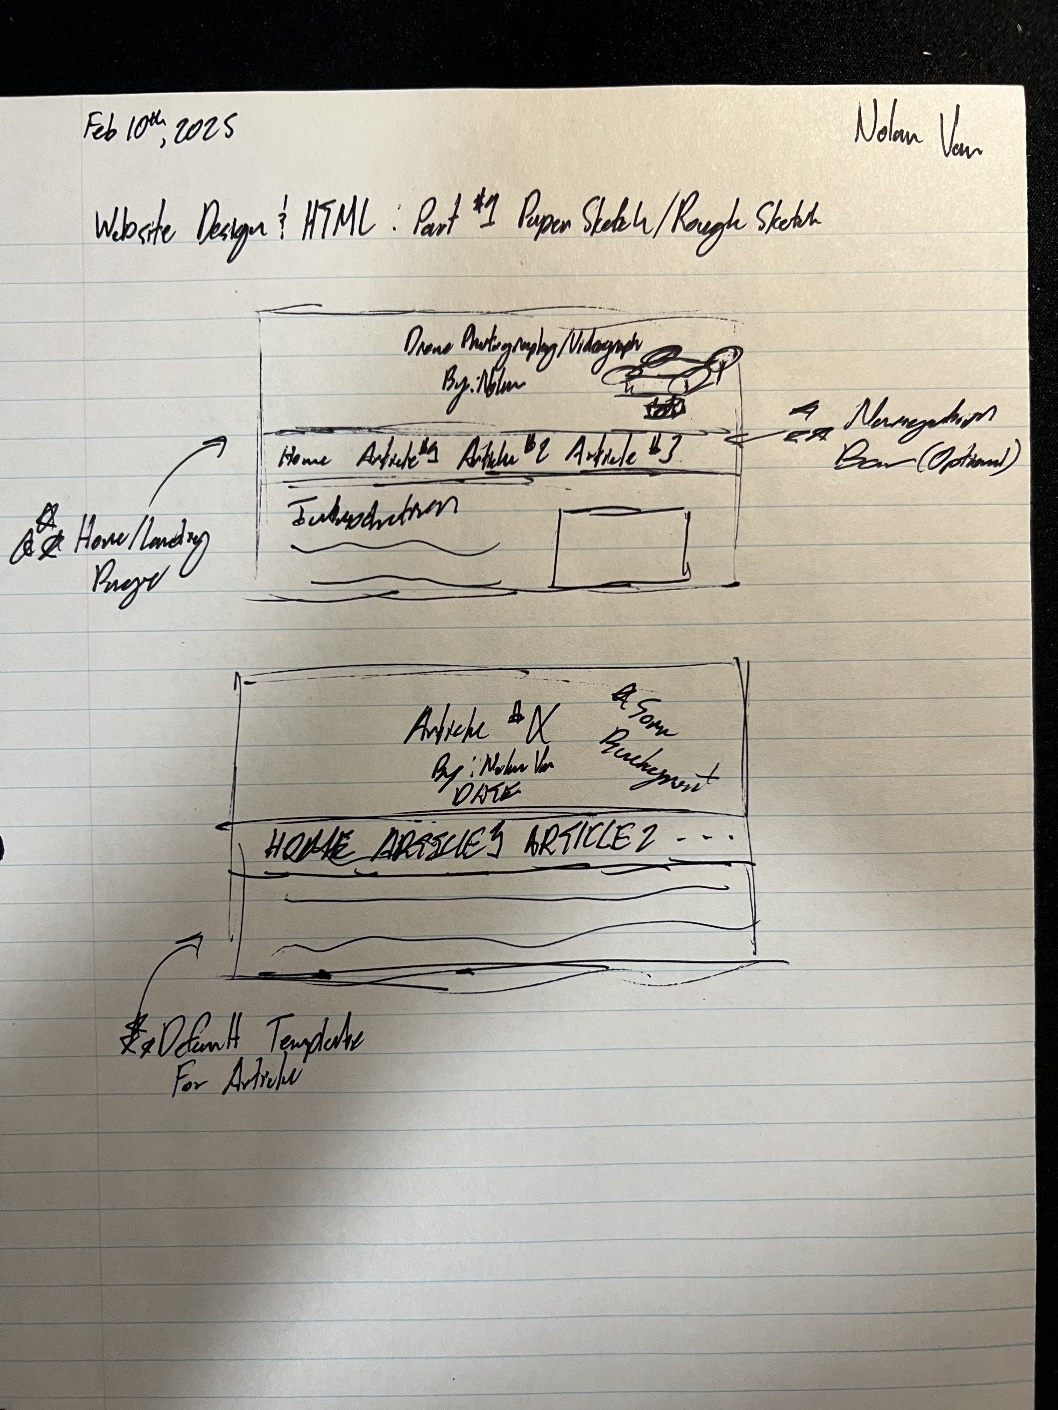 Feb 10th, 2025
Nolan Van
Website Design & HTML: Part #1 Paper Sketch/Rough Sketch
Drone Photography/Videograph
By: Nolan
Home Article #1 Article #2 Article #3
Introduction
Bar (Optional)
Home/Landing
Page
Article #X
By: Nolan Van
DATE
Some
HOME ARTICLE1 ARTICLE2 ...
Default Template
For Article